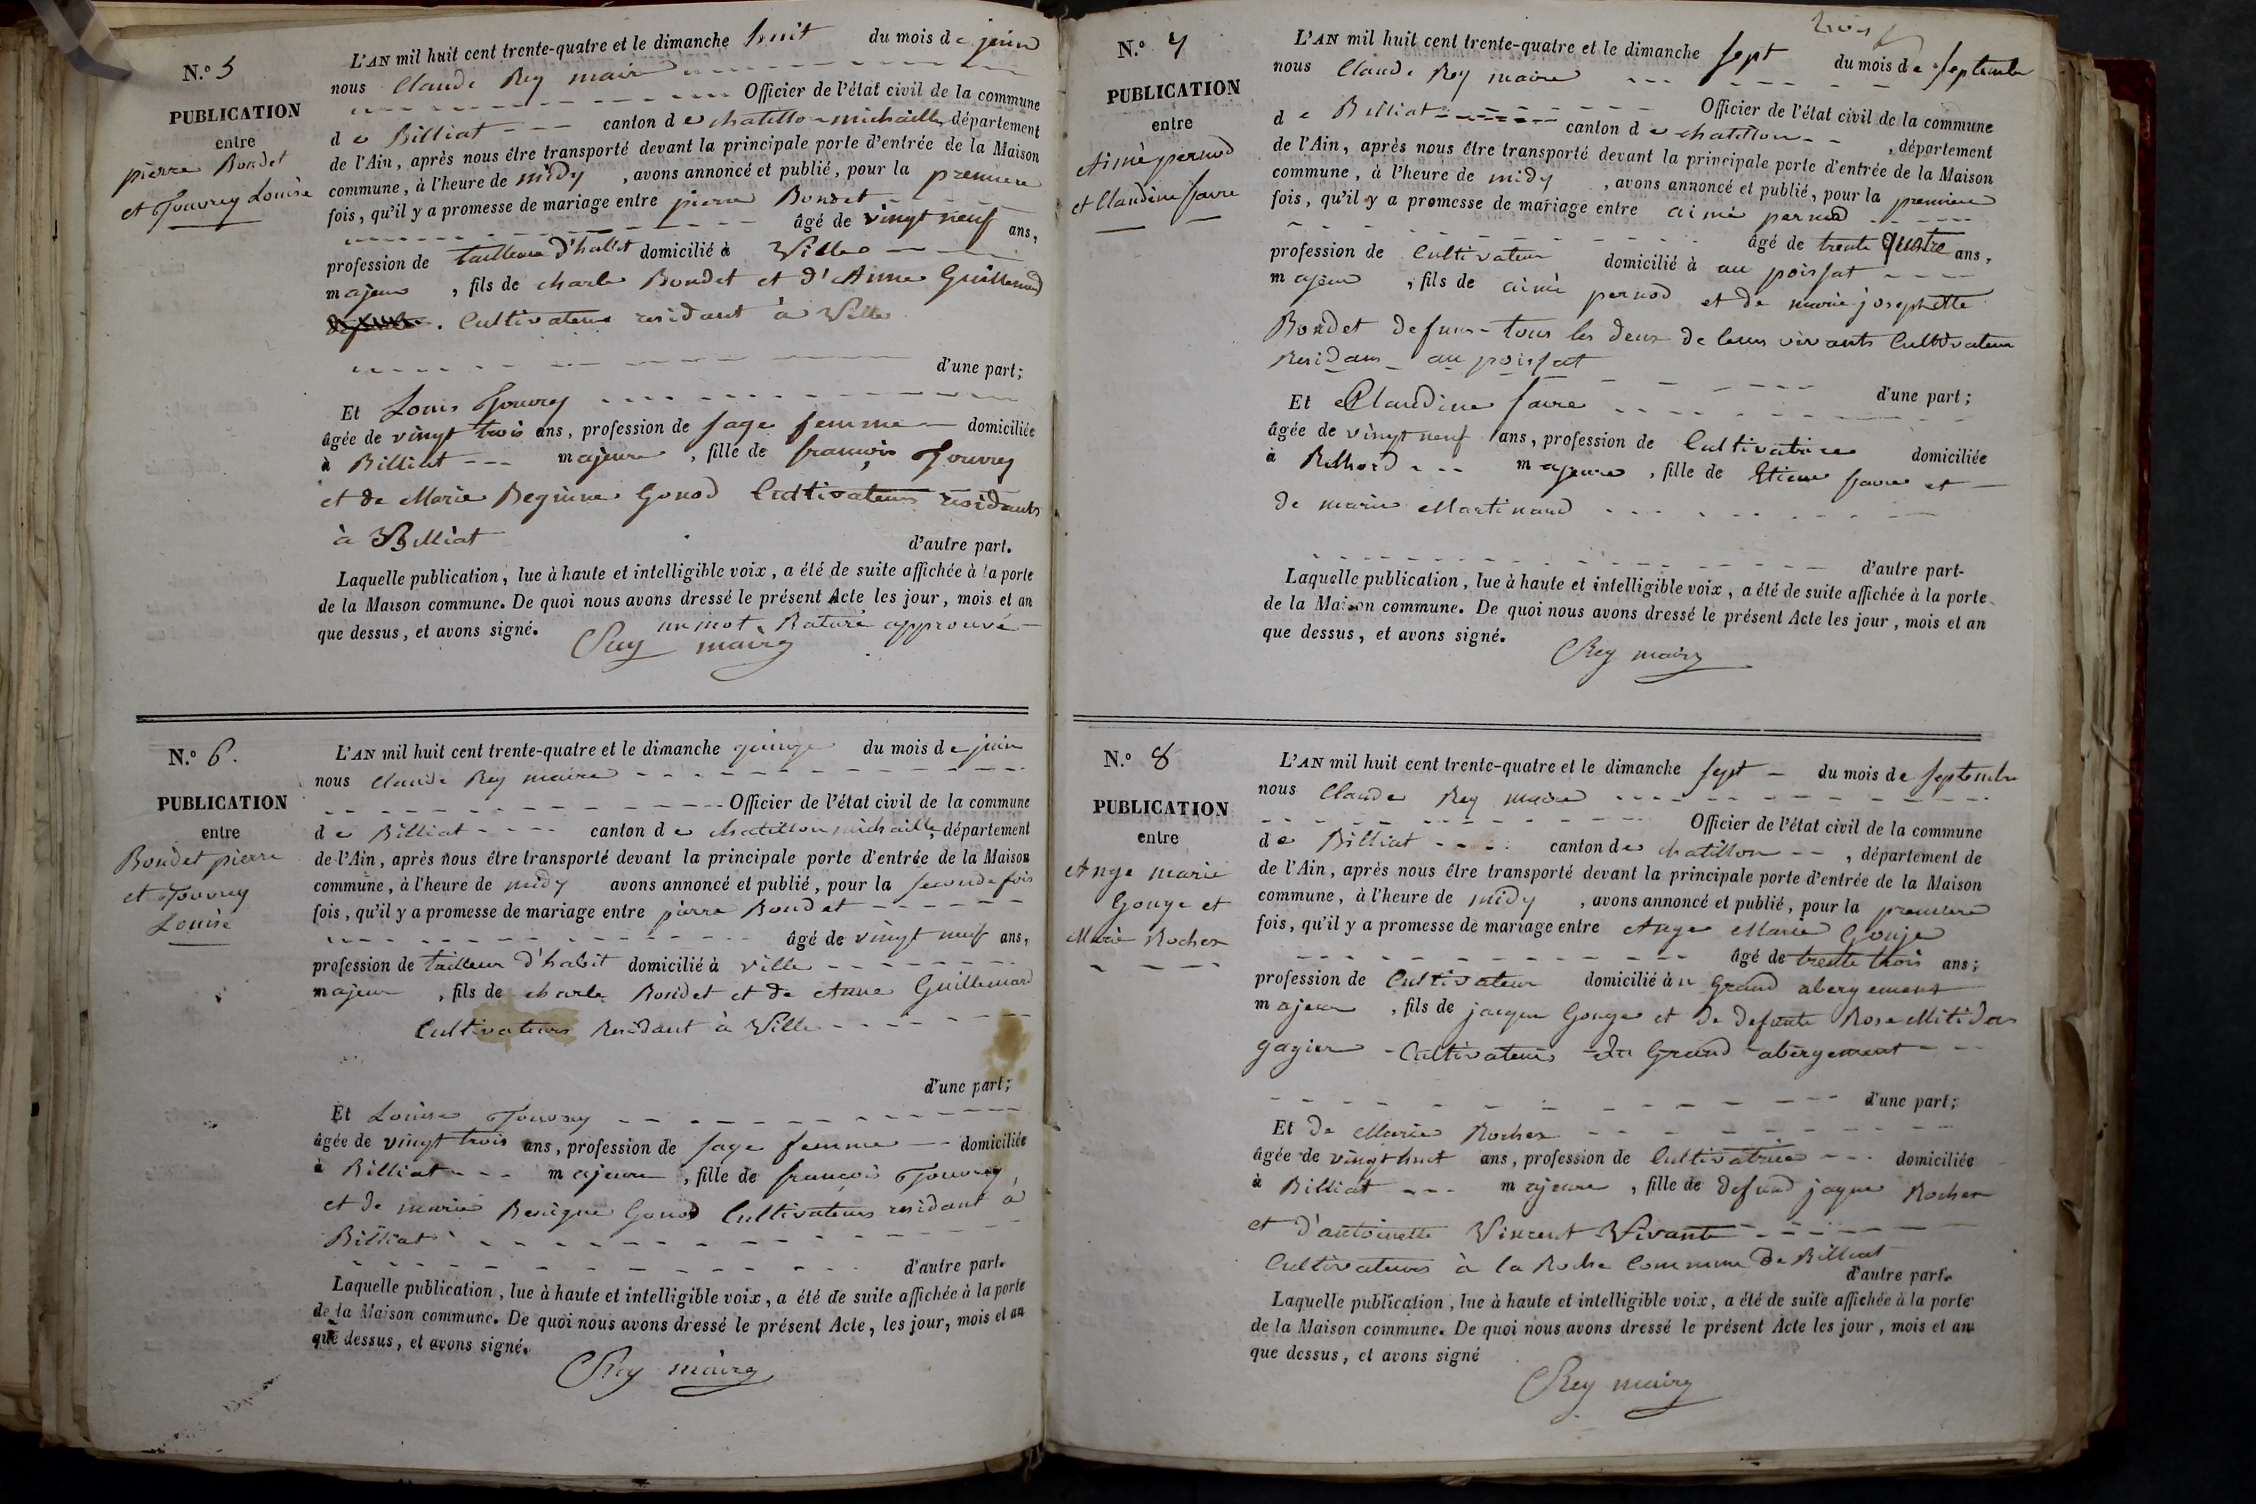 N.o 5
PUBLICATION
entre
pierre Bondet
et Jouvrey Louise
L'AN mil huit cent trente-quatre et le dimanche huit du mois de juin
nous Claude Rey maire
Officier de l'état civil de la commune
de Billiat canton de chatillon michaille département
de l'Ain, après nous être transporté devant la principale porte d'entrée de la Maison
commune, à l'heure de midy, avons annoncé et publié, pour la premiere
fois, qu'il y a promesse de mariage entre pierre Bondet
âgé de vingt neuf ans,
profession de tailleur d'habit domicilié à Ville
majeur, fils de charle Bondet et d'Anne Guillemard
Cultivateurs residant à Ville
d'une part;
Et Louis Jouvrey
âgée de vingt trois ans, profession de sage femme domiciliée
à Billiat majeure, fille de francois Jouvrey
et de Marie Benigne Gonod Cultivateurs residants
à Billiat
d'autre part.
Laquelle publication, lue à haute et intelligible voix, a été de suite affichée à la porte
de la Maison commune. De quoi nous avons dressé le présent Acte les jour, mois et an
que dessus, et avons signé. un mot Raturé approuvé
Rey maire
N.o 6.
PUBLICATION
entre
Bondet pierre
et Jouvrey
Louise
L'AN mil huit cent trente-quatre et le dimanche quinze du mois de juin
nous Claude Rey maire
Officier de l'état civil de la commune
de Billiat canton de chatillon michaille département
de l'Ain, après nous être transporté devant la principale porte d'entrée de la Maison
commune, à l'heure de midy avons annoncé et publié, pour la seconde fois
fois, qu'il y a promesse de mariage entre pierre Bondet
âgé de vingt neuf ans,
profession de tailleur d'habit domicilié à ville
majeur, fils de charle Bondet et de Anne Guillemard
Cultivateurs Residant à Ville
d'une part;
Et Louise Jouvrey
âgée de vingt trois ans, profession de sage femme domiciliée
à Billiat majeure, fille de francois Jouvrey
et de marie Benigne Gonod Cultivateurs residant à
Billiat
d'autre part.
Laquelle publication, lue à haute et intelligible voix, a été de suite affichée à la porte
de la Maison commune. De quoi nous avons dressé le présent Acte, les jour, mois et an
que dessus, et avons signé.
Rey maire
trois
N.o 7
PUBLICATION
entre
Aimé pernod
et Claudine favre
L'AN mil huit cent trente-quatre et le dimanche sept du mois de septembre
nous Claude Rey maire
Officier de l'état civil de la commune
de Billiat canton de chatillon, département
de l'Ain, après nous être transporté devant la principale porte d'entrée de la Maison
commune, à l'heure de midy, avons annoncé et publié, pour la premiere
fois, qu'il y a promesse de mariage entre aimé pernod
âgé de trente quatre ans,
profession de Cultivateur domicilié à au poissat
majeur, fils de aimé pernod et de marie josephette
Bondet defuns tous les deux de leurs vivants Cultivateur
Residans au poissat
d'une part;
Et Claudine favre
âgée de vingt neuf ans, profession de Cultivatrice domiciliée
à majeure, fille de Etiene favre et
de marie Martinand
d'autre part-
Laquelle publication, lue à haute et intelligible voix, a été de suite affichée à la porte
de la Maison commune. De quoi nous avons dressé le présent Acte les jour, mois et an
que dessus, et avons signé.
Rey maire
N.o 8
PUBLICATION
entre
Ange marie
Gouge et
Marie Rocher
L'AN mil huit cent trente-quatre et le dimanche sept du mois de septembre
nous Claude Rey maire
Officier de l'état civil de la commune
de Billiat canton de chatillon, département de
de l'Ain, après nous être transporté devant la principale porte d'entrée de la Maison
commune, à l'heure de midy, avons annoncé et publié, pour la premiere
fois, qu'il y a promesse de mariage entre Ange Marie Gouje
âgé de trente trois ans;
profession de Cultivateur domicilié à u Grand abergement
majeur, fils de jacque Gouge et de defunte Rose
gagier Cultivateurs du Grand abergement
d'une part;
Et de Marie Rocher
âgée de vingt huit ans, profession de Cultivatrice domiciliée
à Billiat majeure, fille de defund jaque Rocher
et d'antoinette Vincent Vivante
Cultivateurs à la Roche Commune de Billiat
d'autre part.
Laquelle publication, lue à haute et intelligible voix, a été de suite affichée à la porte
de la Maison commune. De quoi nous avons dressé le présent Acte les jour, mois et an
que dessus, et avons signé
Rey maire